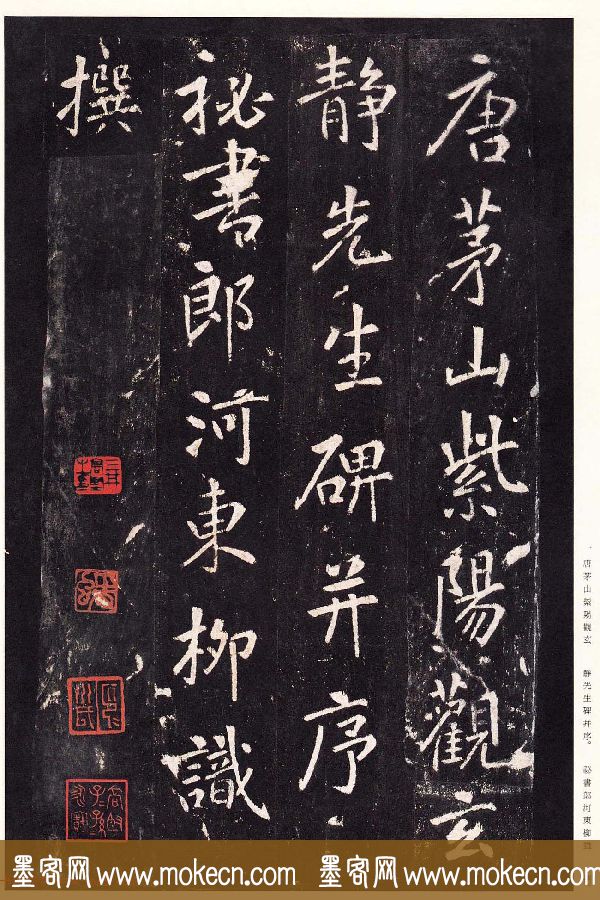 唐茅山紫陽觀玄
靜先生碑并序
祕書郎河東柳識
撰
一 唐茅山紫陽觀玄 靜先生碑并序。 祕書郎河東柳識
墨客网 www.mokecn.com 墨客网 www.mokecn.com